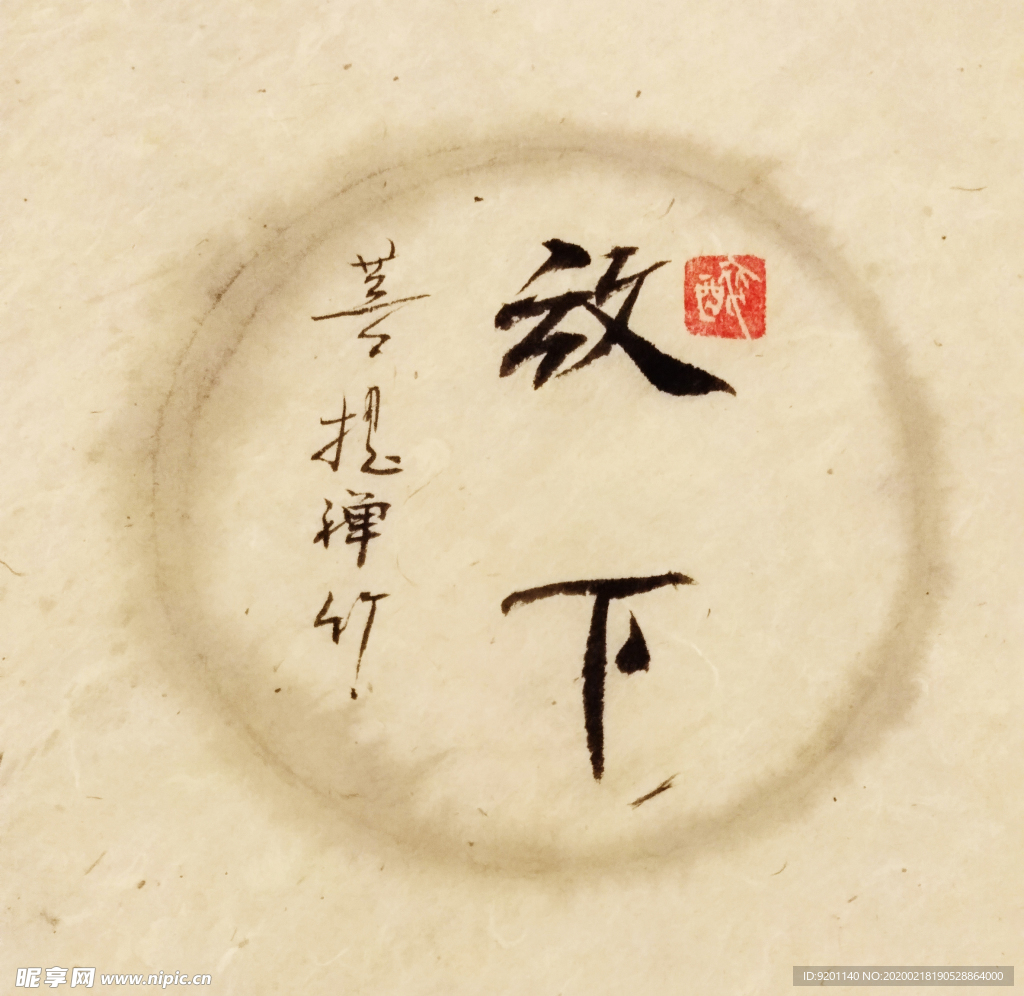 放下
菩提禅竹
昵享网 www.nipic.cn
ID:9201140 NO:20200218190528864000